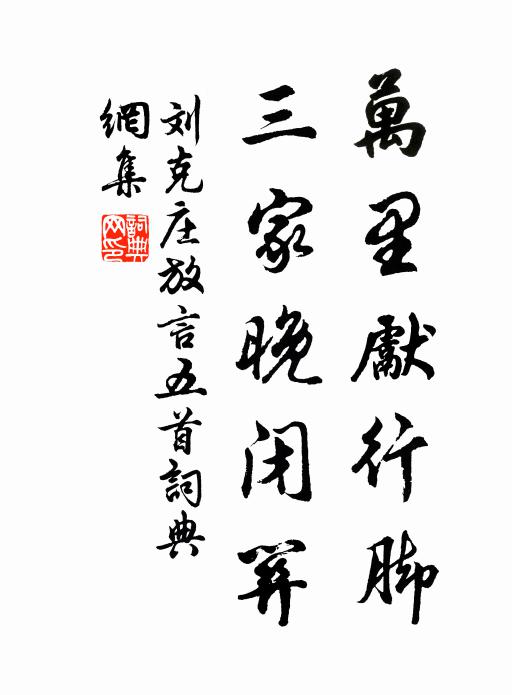 萬里厭行脚
三家晚闭关
刘克庄放言五首詞典
網集
詞典网印